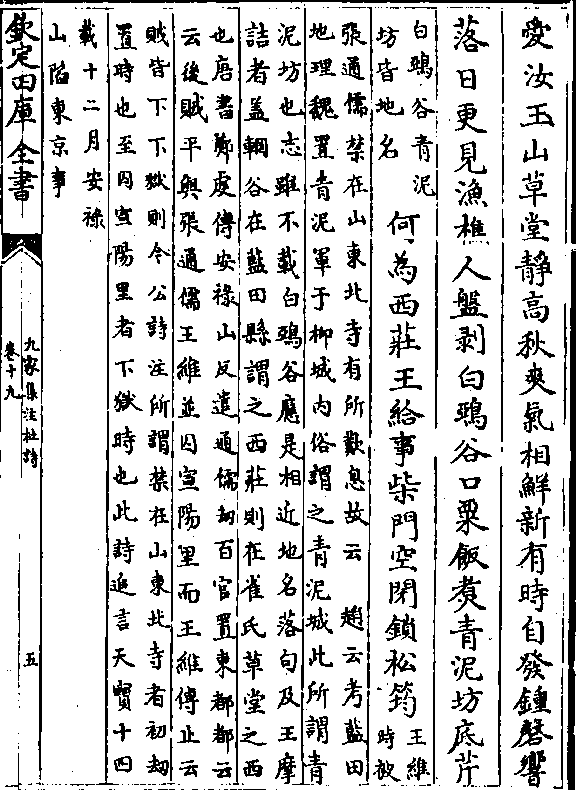 愛汝玉山草堂靜高秋爽氣相鮮新有時自發鍾磬響
落日更見漁樵人盤剥白鵶谷口栗飯煑青泥坊底芹
白鵶谷青泥
坊皆地名
何為西莊王給事柴門空閉鎖松筠
王維
時被
張通儒禁在山東北寺有所歎息故云 趙云考藍田
地理魏置青泥軍于柳城内俗謂之青泥城此所謂青
泥坊也志雖不載白鵶谷應是相近地名落句及王摩
詰者盖輞谷在藍田縣謂之西莊則在崔氏草堂之西
也唐書鄭䖍傳安禄山反遣通儒刼百官置東都都云
云後賊平與張通儒王維並囚宣陽里而王維傳止云
賊皆下下獄則今公詩注所謂禁在山東北寺者初刼
置時也至囚宣陽里者下獄時也此詩追言天寶十四
載十二月安祿
山陷東京事
欽定四庫全書
九家集注杜詩
卷十九
五